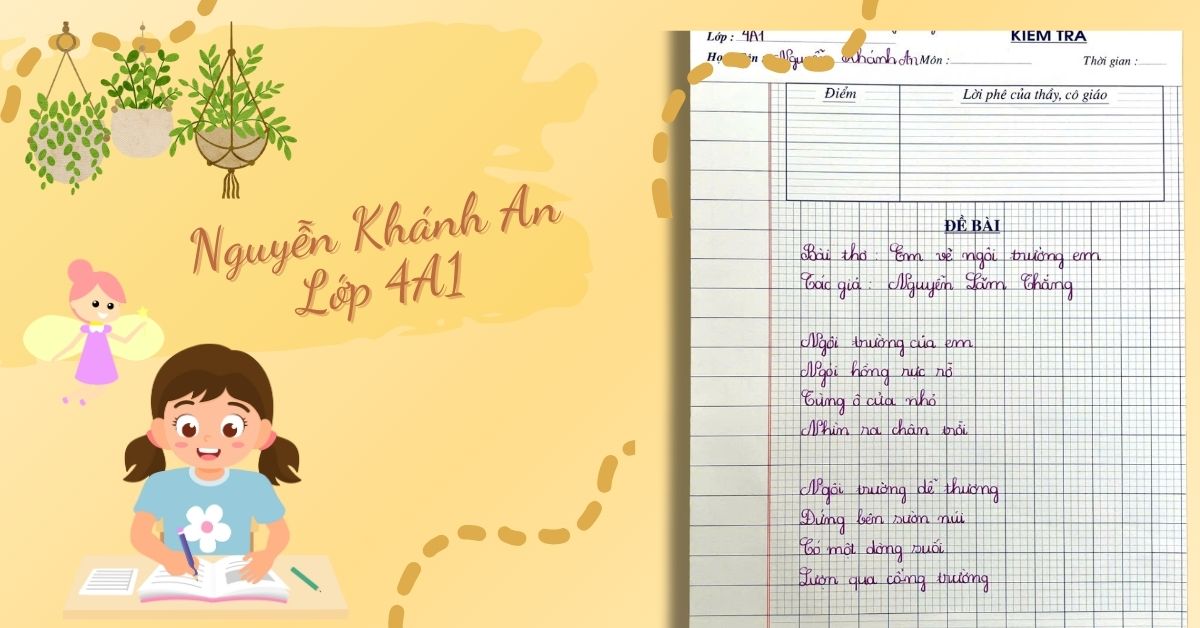 Nguyễn Khánh An
Lớp 4A1
Lớp : 4A1
KIỂM TRA
Họ Nguyễn Khánh An Môn :
Thời gian :
Điểm
Lời phê của thầy, cô giáo
ĐỀ BÀI
Bài thơ : Em vẽ ngôi trường em
Tác giả : Nguyễn Lãm Thắng
Ngôi trường của em
Ngói hồng rực rỡ
Từng ô cửa nhỏ
Nhìn ra chân trời
Ngôi trường dễ thương
Đứng bên sườn núi
Có một dòng suối
Lượn qua cổng trường